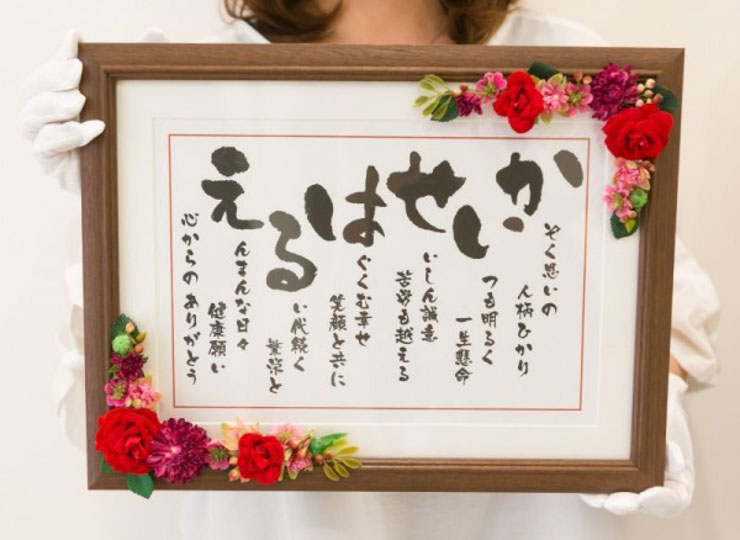 かいせはるえ
ぞく思いの
人柄ひかり
つも明るく
一生懸命
いしん誠意
苦労も越える
ぐくむ幸せ
笑顔と共に
い代続く
繁栄と
んまんな日々
健康願い
心からのありがとう